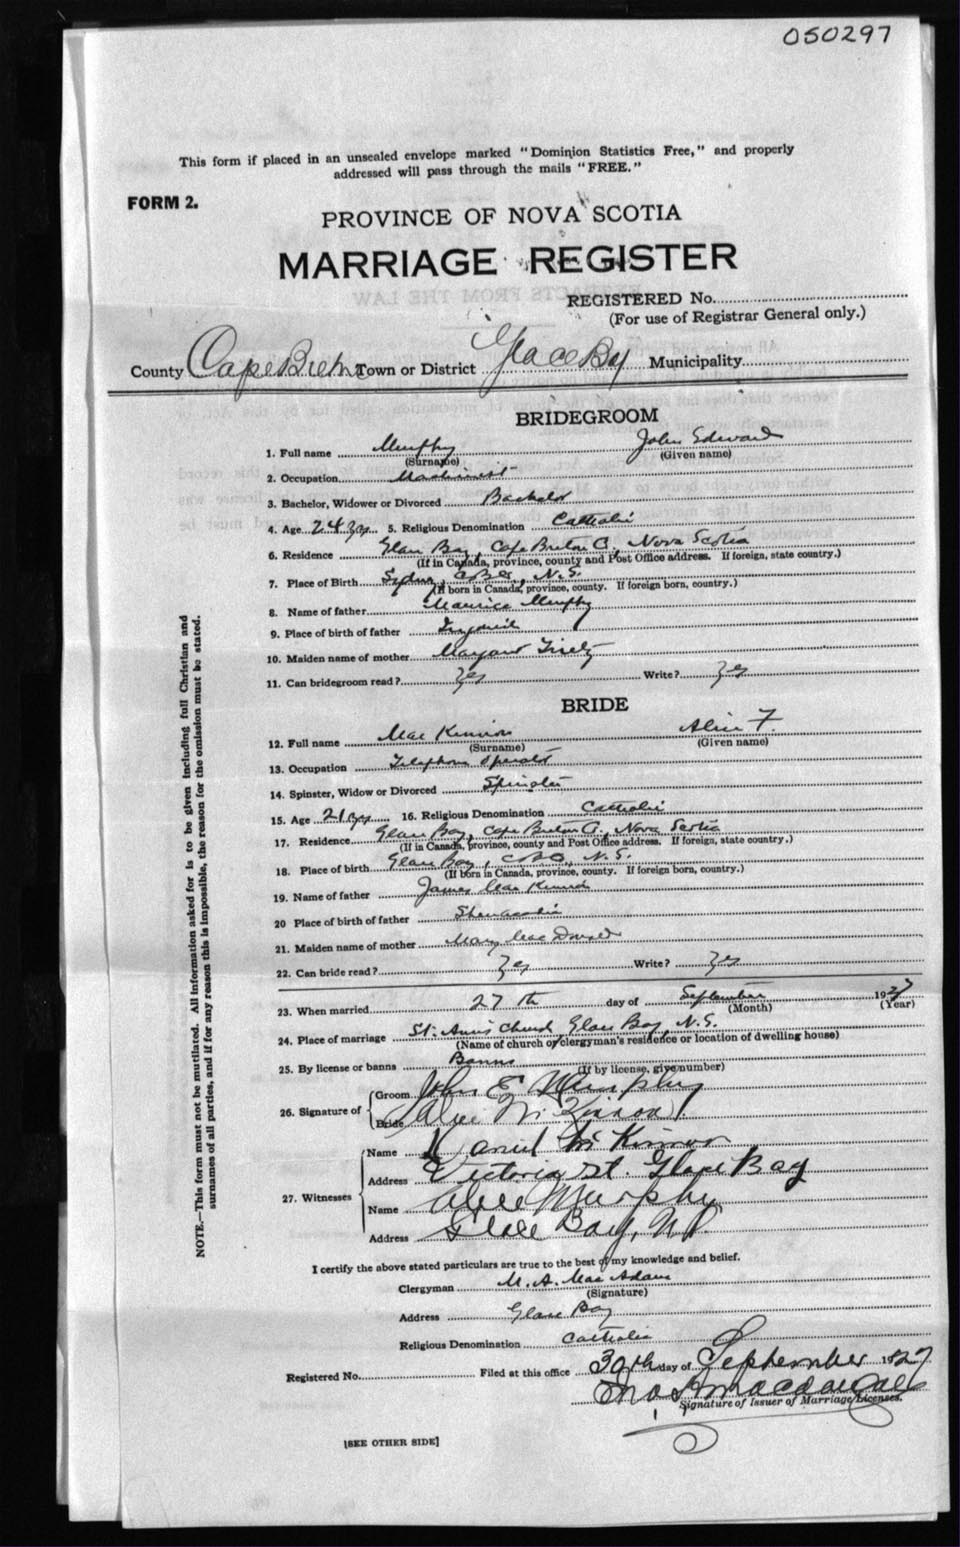 050297
This form if placed in an unsealed envelope marked "Dominion Statistics Free," and properly
addressed will pass through the mails "FREE."
FORM 2.
PROVINCE OF NOVA SCOTIA
MARRIAGE REGISTER
REGISTERED No.
(For use of Registrar General only.)
County Cape Breton Town or District Glace Bay Municipality
BRIDEGROOM
1. Full name Murphy John Edward
(Surname) (Given name)
2. Occupation Machinist
3. Bachelor, Widower or Divorced Bachelor
4. Age 24 yrs 5. Religious Denomination Catholic
6. Residence Glace Bay, Cape Breton C., Nova Scotia
(If in Canada, province, county and Post Office address. If foreign, state country.)
7. Place of Birth Sydney, C.B. , N.S.
(If born in Canada, province, county. If foreign born, country.)
8. Name of father Maurice Murphy
9. Place of birth of father
10. Maiden name of mother Margaret
11. Can bridegroom read? Yes Write? Yes
BRIDE
12. Full name Mac Kinnon Alice F.
(Surname) (Given name)
13. Occupation Telephone Operator
14. Spinster, Widow or Divorced Spinster
15. Age 21 yrs 16. Religious Denomination Catholic
17. Residence Glace Bay, Cape Breton C., Nova Scotia
(If in Canada, province, county and Post Office address. If foreign, state country.)
18. Place of birth Glace Bay, C.B.C., N.S.
(If born in Canada, province, county. If foreign born, country.)
19. Name of father James Mac Kinnon
20 Place of birth of father
21. Maiden name of mother Mary Mac Donald
22. Can bride read? Yes Write? Yes
23. When married 27th day of September 1927
(Month) (Year)
24. Place of marriage St. Ann's Church Glace Bay, N.S.
(Name of church or clergyman's residence or location of dwelling house)
25. By license or banns Banns
(If by license, give number)
26. Signature of
Groom John E Murphy
Bride Alice McKinnon
27. Witnesses
Name Daniel McKinnon
Address Victoria St. Glace Bay
Name Alice Murphy
Address Glace Bay, N.S.
I certify the above stated particulars are true to the best of my knowledge and belief.
Clergyman M. A. Mac Adam
(Signature)
Address Glace Bay
Religious Denomination Catholic
Registered No. Filed at this office 30th day of September 1927
Signature of Issuer of Marriage Licenses.
[SEE OTHER SIDE]
NOTE.—This form must not be mutilated. All information asked for is to be given including full Christian and
surnames of all parties, and if for any reason this is impossible, the reason for the omission must be stated.